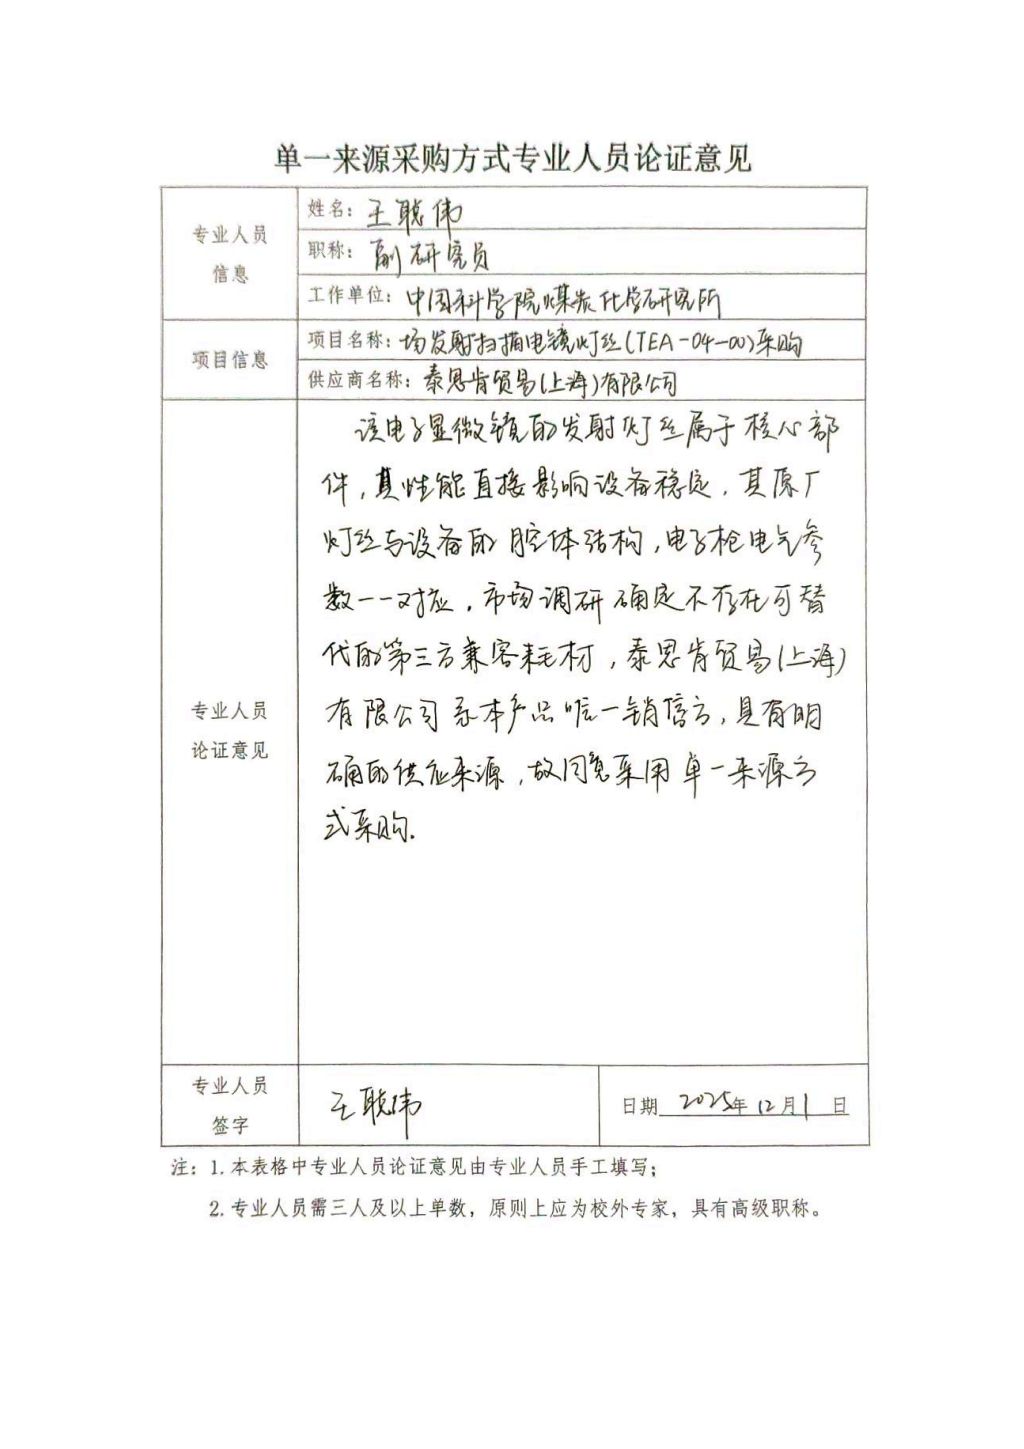 单一来源采购方式专业人员论证意见
专业人员
信息
姓名：王聪伟
职称：副研究员
工作单位：中国科学院煤炭化学研究所
项目信息
项目名称：场发射扫描电镜灯丝(TEA-04-00)采购
供应商名称：泰思肯贸易(上海)有限公司
专业人员
论证意见
该电子显微镜的发射灯丝属于核心部
件，其性能直接影响设备稳定，其原厂
灯丝与设备的腔体结构，电子枪电气参
数一一对应，市场调研确定不存在可替
代的第三方兼容耗材，泰思肯贸易(上海)
有限公司系本产品唯一销售方，具有明
确的供应来源，故同意采用单一来源方
式采购.
专业人员
签字
王聪伟
日期 2025年12月1日
注：1.本表格中专业人员论证意见由专业人员手工填写；
2.专业人员需三人及以上单数，原则上应为校外专家，具有高级职称。